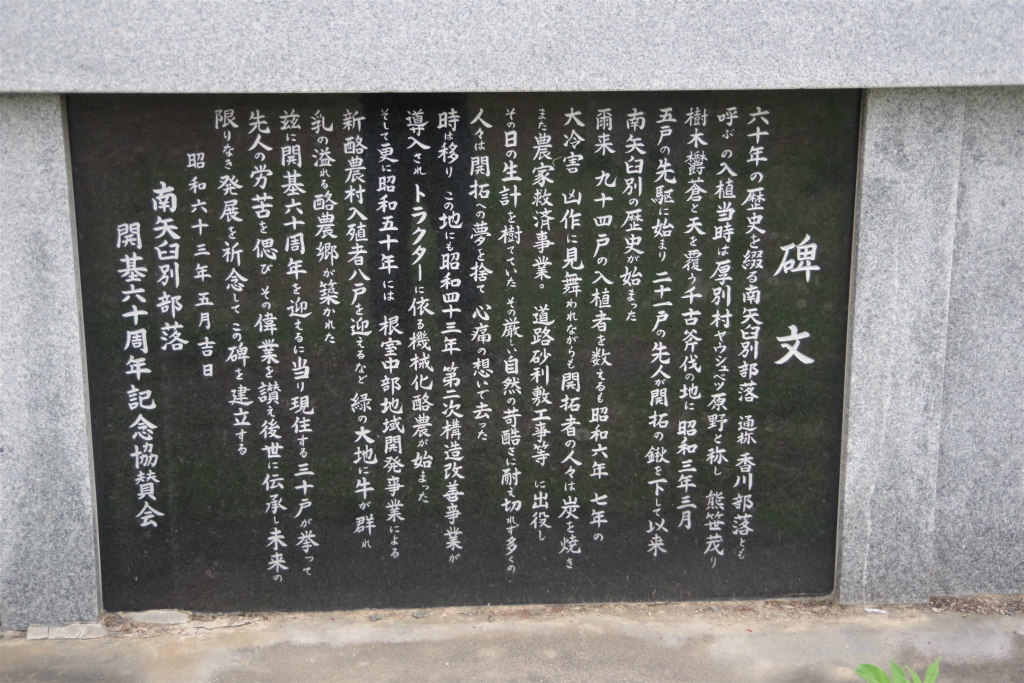 碑文
六十年の歴史を綴る南矢臼別部落 通称 香川部落とも
呼ぶの入植当時は厚別村ヤウシュベツ原野と称し 熊笹茂り
樹木欝蒼と天を覆う千古斧伐の地に 昭和三年三月
五戸の先駆に始まり 二十一戸の先人が開拓の鍬を下して以来
南矢臼別の歴史が始まった
爾来 九十四戸の入植者を数えるも昭和六年 七年の
大冷害 凶作に見舞われながらも開拓者の人々は炭を焼き
また農家救済事業。道路砂利敷工事等 に出役し
その日の生計を樹てていた その厳しい自然の苛酷さに耐え切れず多くの
人々は開拓への夢を捨て 心痛の想いで去った
時は移り この地にも昭和四十三年 第二次構造改善事業が
導入され トラクターに依る機械化酪農が始まった
そして更に昭和五十年には 根室中部地域開発事業による
新酪農村入殖者八戸を迎えるなど 緑の大地に牛が群れ
乳の溢れる酪農郷が築かれた
玆に開基六十周年を迎えるに当り現住する三十戸が挙って
先人の労苦を偲び その偉業を讃え後世に伝承し未来の
限りなき発展を祈念して この碑を建立する
昭和六十三年五月吉日
南矢臼別部落
開基六十周年記念協賛会